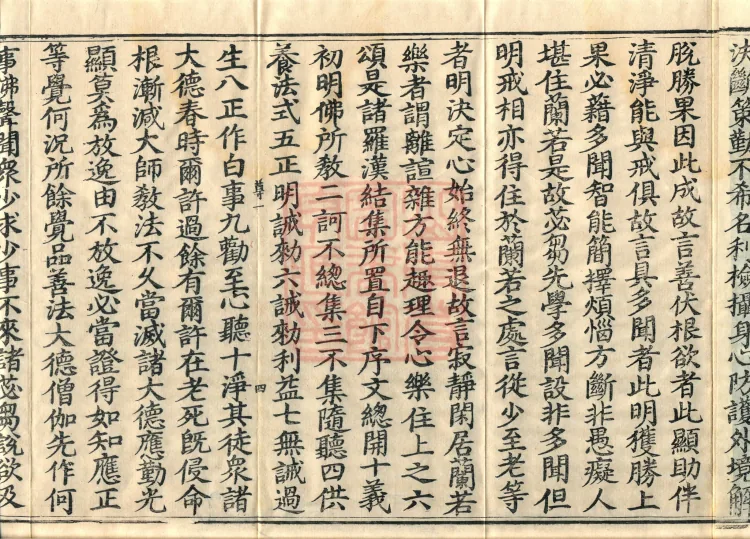 決斷策勤不希名利檢攝身心防護外境解
脫勝果因此成故言善伏根欲者此顯助伴
清淨能與戒俱故言具多聞者此明獲勝上
果必藉多聞智能簡擇煩惱方斷非愚癡人
堪住蘭若是故苾芻先學多聞設非多聞但
明戒相亦得住於蘭若之處言從少至老等
者明決定心始終無退故言寂靜閑居蘭若
樂者謂離諠雜方能趣理令心樂住上之六
頌是諸羅漢結集所置自下序文總開十義
初明佛所教二訶不總集三不集隨聽四供
養法式五正明誡勑六誡勑利益七無誡過
尊一 四
生八正作白事九勸至心聽十淨其徒衆諸
大德春時爾許過餘有爾許在老死旣侵命
根漸減大師教法不久當滅諸大德應勤光
顯莫爲放逸由不放逸必當證得如知應正
等覺何況所餘覺品善法大德僧伽先作何
事佛聲聞衆少求少事不來諸苾芻說欲及